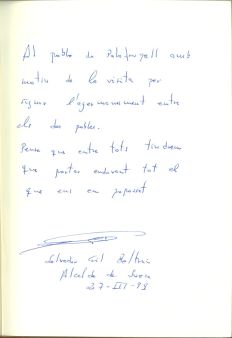 Al poble de Palafrugell amb
motiu de la visita per
signar l'agermanament entre
els dos pobles.
Pense que entre tots tindrem
que portar endavant tot el
que ens em proposat
Salvador Gil Beltran
Alcalde de Sueca
27-III-93